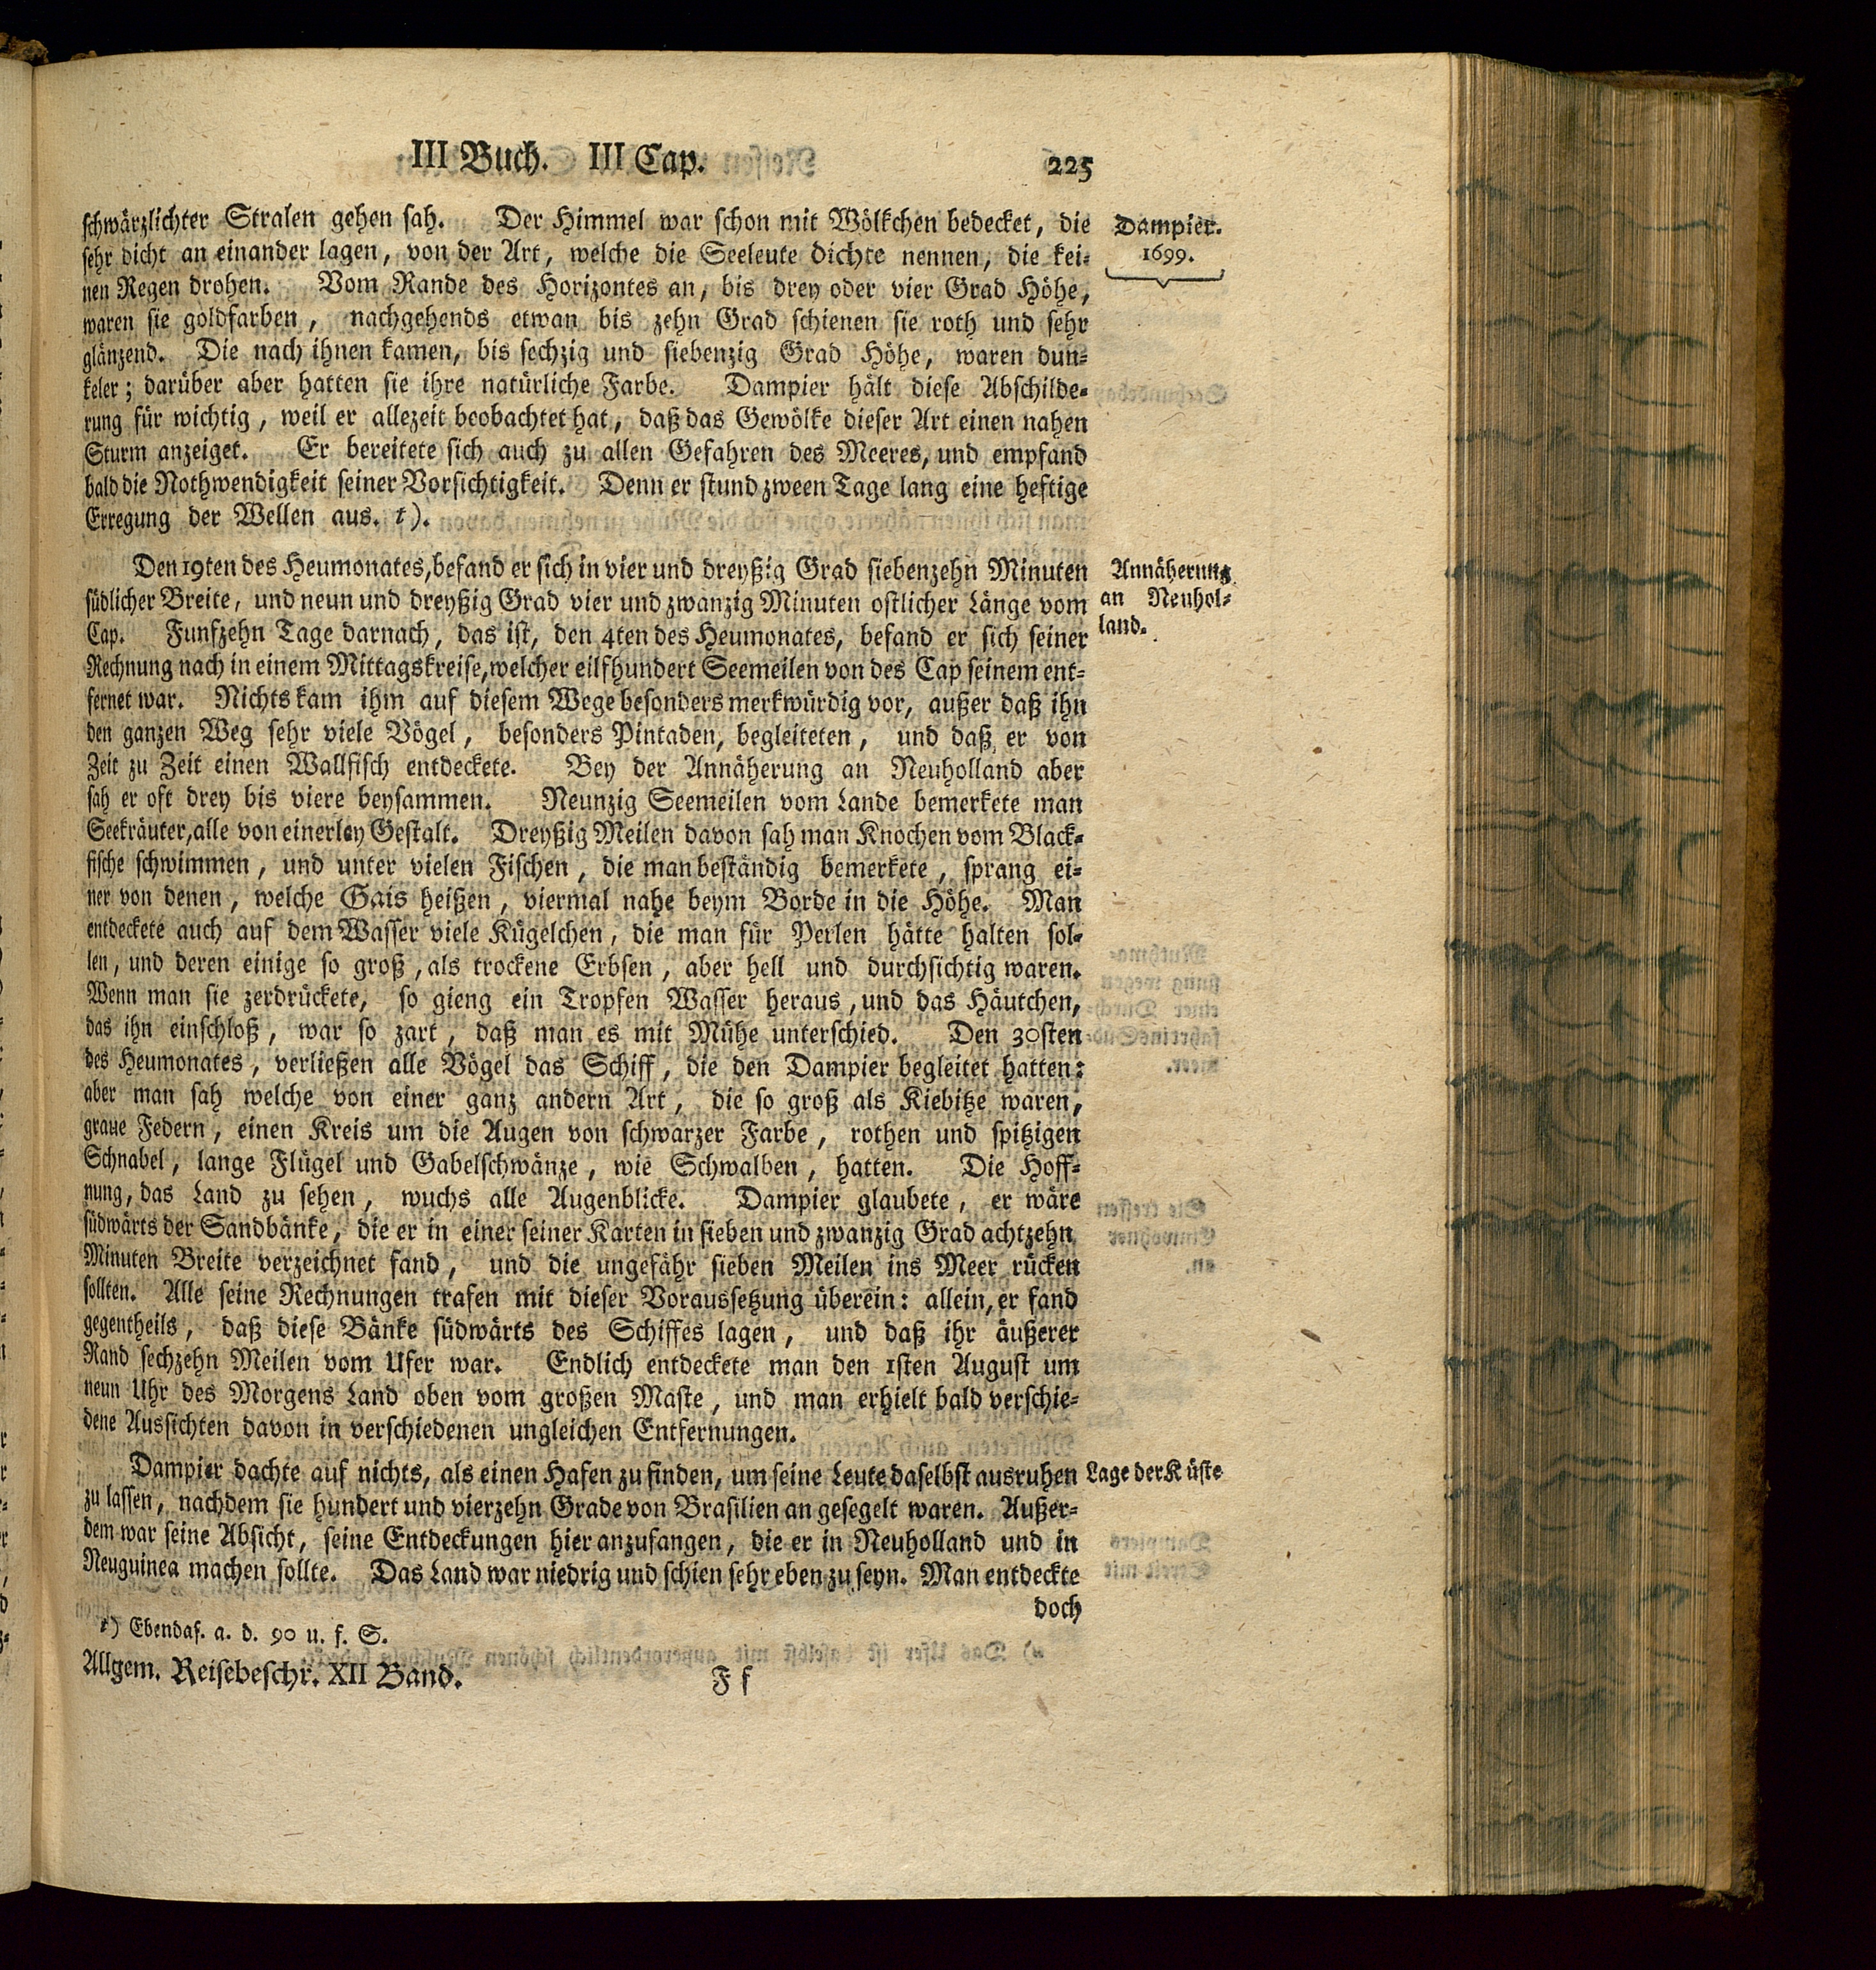 III Buch. III Cap. 225
schwärzlichter Stralen gehen sah. Der Himmel war schon mit Wölkchen bedecket, die
Dampier.
sehr dicht an einander lagen, von der Art, welche die Seeleute dichte nennen, die kei-
1699.
nen Regen drohen. Vom Rande des Horizontes an, bis drey oder vier Grad Höhe,
waren sie goldfarben, nachgehends etwan bis zehn Grad schienen sie roth und sehr
glänzend. Die nach ihnen kamen, bis sechzig und siebenzig Grad Höhe, waren dun-
keler; darüber aber hatten sie ihre natürliche Farbe. Dampier hält diese Abschilde-
rung für wichtig, weil er allezeit beobachtet hat, daß das Gewölke dieser Art einen nahen
Sturm anzeiget. Er bereitete sich auch zu allen Gefahren des Meeres, und empfand
bald die Nothwendigkeit seiner Vorsichtigkeit. Denn er stund zween Tage lang eine heftige
Erregung der Wellen aus. t).
Den 19ten des Heumonates, befand er sich in vier und dreyßig Grad siebenzehn Minuten
Annäherung
südlicher Breite, und neun und dreyßig Grad vier und zwanzig Minuten ostlicher Länge vom
an Neuhol-
Cap. Funfzehn Tage darnach, das ist, den 4ten des Heumonates, befand er sich seiner
land.
Rechnung nach in einem Mittagskreise, welcher eilfhundert Seemeilen von des Cap seinem ent-
fernet war. Nichts kam ihm auf diesem Wege besonders merkwürdig vor, außer daß ihn
den ganzen Weg sehr viele Vögel, besonders Pintaden, begleiteten, und daß er von
Zeit zu Zeit einen Wallfisch entdeckete. Bey der Annäherung an Neuholland aber
sah er oft drey bis viere beysammen. Neunzig Seemeilen vom Lande bemerkete man
Seekräuter, alle von einerley Gestalt. Dreyßig Meilen davon sah man Knochen vom Black-
fische schwimmen, und unter vielen Fischen, die man beständig bemerkete, sprang ei-
ner von denen, welche Gais heißen, viermal nahe beym Borde in die Höhe. Man
entdeckete auch auf dem Wasser viele Kügelchen, die man für Perlen hätte halten sol-
len, und deren einige so groß, als trockene Erbsen, aber hell und durchsichtig waren.
Wenn man sie zerdrückete, so gieng ein Tropfen Wasser heraus, und das Häutchen,
das ihn einschloß, war so zart, daß man es mit Mühe unterschied. Den 30sten
des Heumonates, verließen alle Vögel das Schiff, die den Dampier begleitet hatten:
aber man sah welche von einer ganz andern Art, die so groß als Kiebitze waren,
graue Federn, einen Kreis um die Augen von schwarzer Farbe, rothen und spitzigen
Schnabel, lange Flügel und Gabelschwänze, wie Schwalben, hatten. Die Hoff-
nung, das Land zu sehen, wuchs alle Augenblicke. Dampier glaubete, er wäre
südwärts der Sandbänke, die er in einer seiner Karten in sieben und zwanzig Grad achtzehn
Minuten Breite verzeichnet fand, und die ungefähr sieben Meilen ins Meer rücken
sollten. Alle seine Rechnungen trafen mit dieser Voraussetzung überein: allein, er fand
gegentheils, daß diese Bänke südwärts des Schiffes lagen, und daß ihr äußerer
Rand sechzehn Meilen vom Ufer war. Endlich entdeckete man den 1sten August um
neun Uhr des Morgens Land oben vom großen Maste, und man erhielt bald verschie-
dene Aussichten davon in verschiedenen ungleichen Entfernungen.
Dampier dachte auf nichts, als einen Hafen zu finden, um seine Leute daselbst ausruhen
Lage der Küste
zu lassen, nachdem sie hundert und vierzehn Grade von Brasilien an gesegelt waren. Außer-
dem war seine Absicht, seine Entdeckungen hier anzufangen, die er in Neuholland und in
Neuguinea machen sollte. Das Land war niedrig und schien sehr eben zu seyn. Man entdeckte
doch
t) Ebendas. a. d. 90 u. f. S.
Allgem. Reisebeschr. XII Band. F f